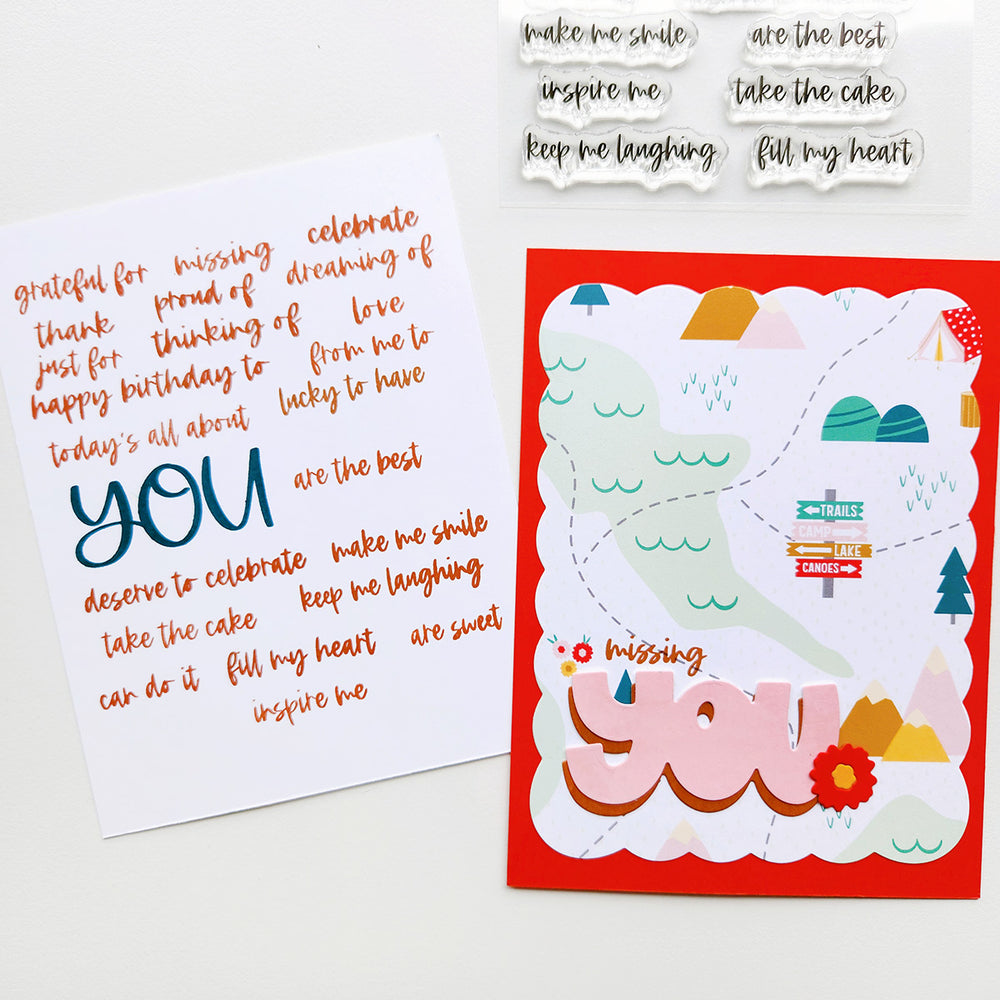 make me smile are the best
inspire me take the cake
keep me laughing fill my heart
grateful for missing celebrate
thank proud of dreaming of
just for thinking of love
happy birthday to from me to
today's all about lucky to have
you are the best
deserve to celebrate make me smile
take the cake keep me laughing
can do it fill my heart are sweet
inspire me
TRAILS
CAMP
LAKE
CANOES
missing
you